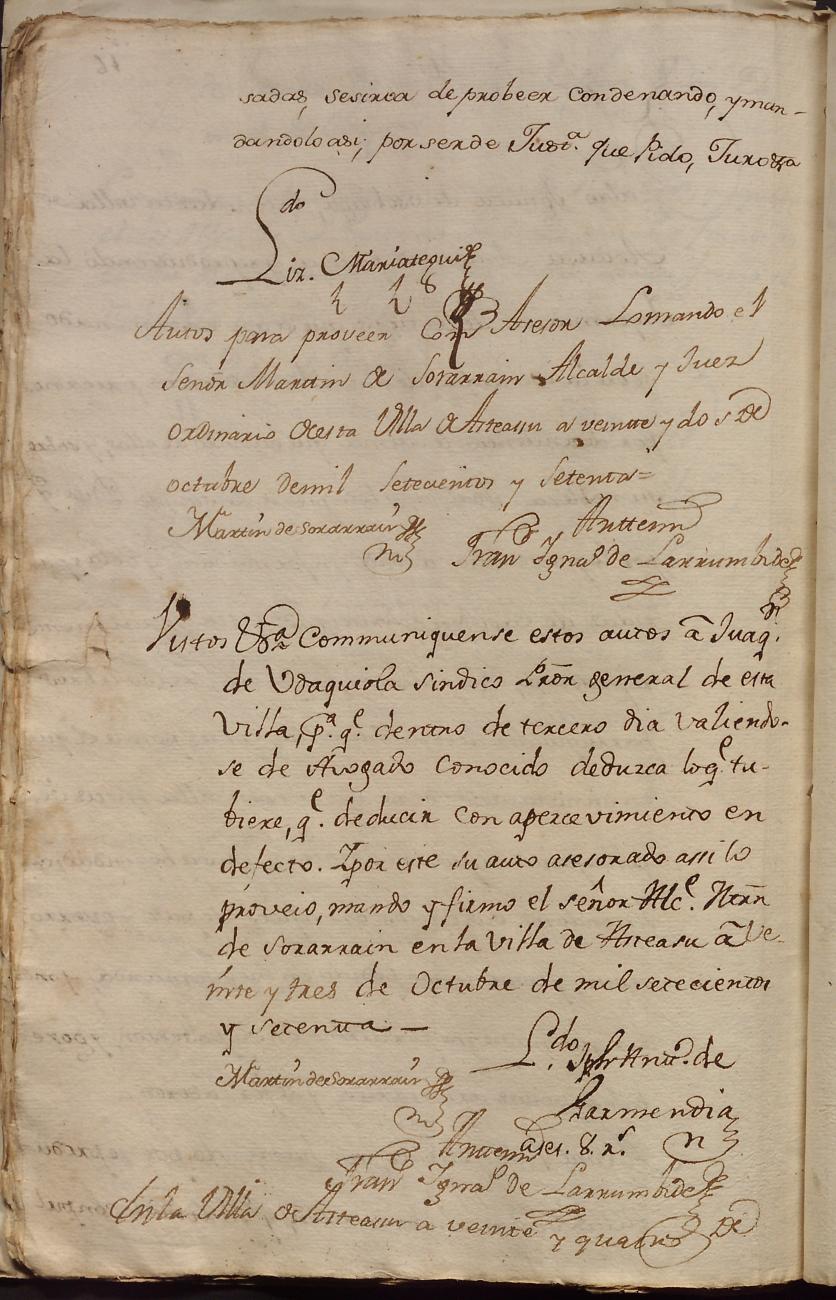 sadas, sesirva de probeer Condenando, y man-
dandolo asi; por ser de Just.ª que Pido, Juro &ra
Liz.do Mariategui
Autos para proveer Con Asesor Lo mando el
Señor Martin de Sorarrain Alcalde y Juez
ordinario de esta Villa de Asteasu a veinte y dos de
octubre de mil setecientos y setenta=
Martin de Sorarrain
Antemi
Fran.co Ignaº de Larrumbide
Vistos &ra Communiquense estos autos â Juaqⁿ.
de Vdaquiola sindico Prõr general de esta
Villa, p.ª q.e dentro de tercero dia valiendo-
se de Avogado Conocido deduzca loq.e tu-
biere, q.e deducir con apercevimiento en
defecto. Ypor este su auto asesorado assi lo
proveio, mando y firmo el señor Alc.e Mrñ
de sorarrain en la Villa de Asteasu â Ve-
inte y tres de Octubre de mil setecientos
y setenta —
L.do Antº. de
Garmendia
Martin de Sorarrain
Antemi
Fran.co Ignaº de Larrumbide
En la Villa de Asteasu a veinte
y quatro de